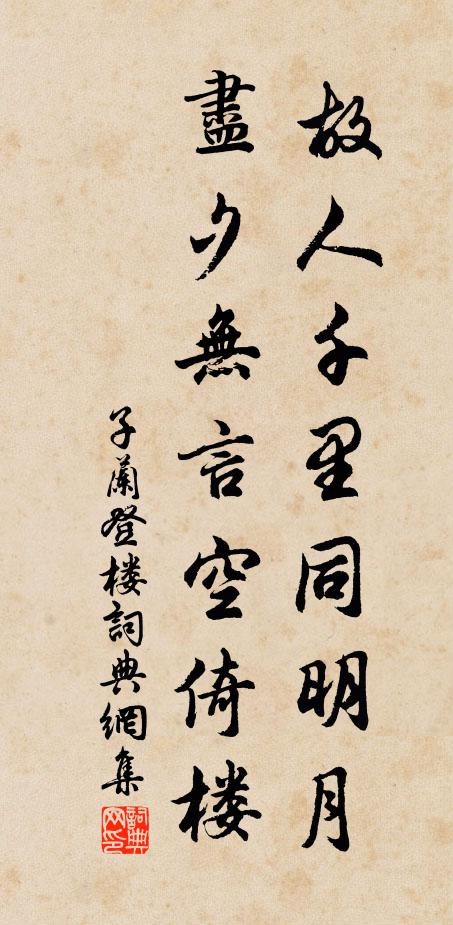 故人千里同明月
盡夕無言空倚楼
子蘭登楼詞典網集
詞典网印